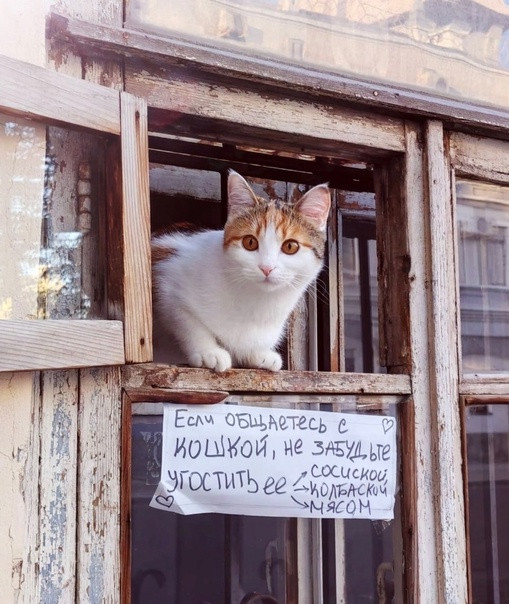 Если общаетесь с
кошкой, не забудьте
угостить ее сосиской
колбаской
мясом